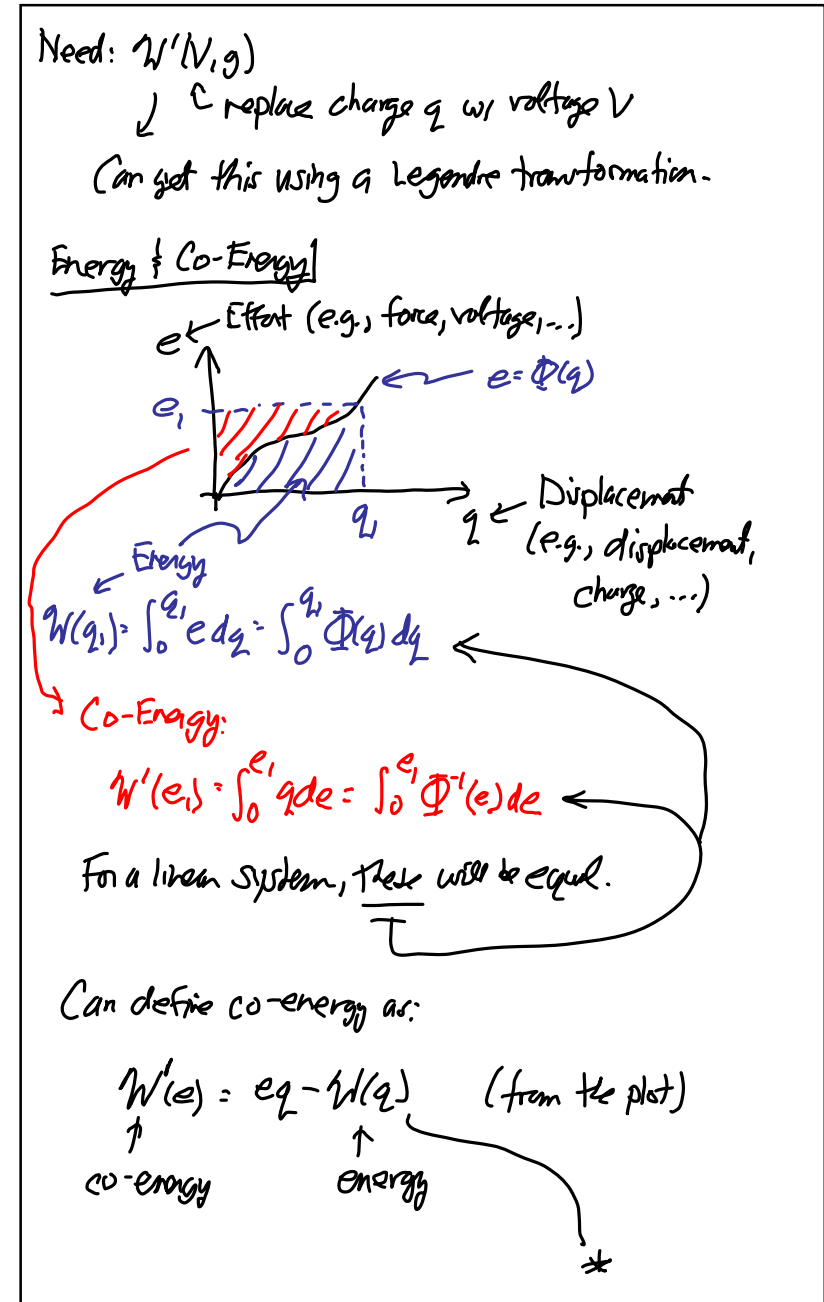 Need: W'(V,g)
replace charge q w/ voltage V
Can get this using a Legendre transformation.
Energy & Co-Energy
e ← Effort (e.g., force, voltage, ...)
e = Φ(q)
e₁
q₁
q ← Displacement
(e.g., displacement,
charge, ...)
Energy
W(q₁) = ∫₀^q₁ e dq = ∫₀^q₁ Φ(q) dq
Co-Energy:
W'(e₁) = ∫₀^e₁ q de = ∫₀^e₁ Φ⁻¹(e) de
For a linear system, these will be equal.
Can define co-energy as:
W'(e) = eq - W(q) (from the plot)
co-energy energy
*